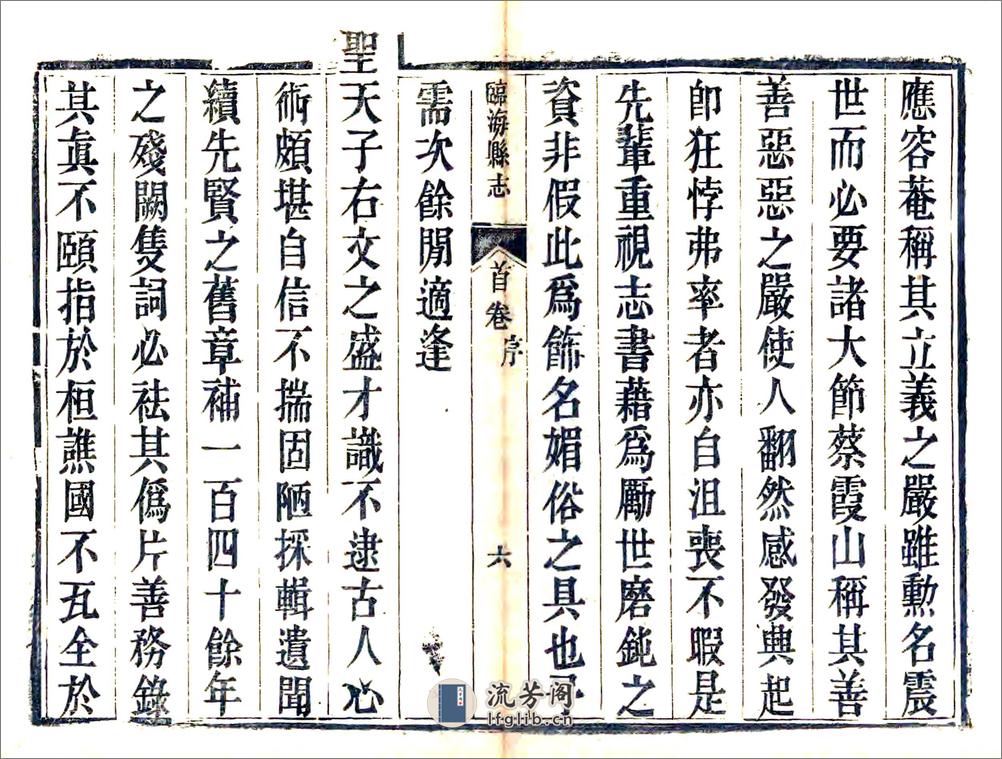 應容菴稱其立義之嚴雖勲名震
世而必要諸大節蔡霞山稱其善
善惡惡之嚴使人翻然感發典起
卽狂悖弗率者亦自沮喪不暇是
先輩重視志書藉爲勵世磨鈍之
資非假此爲飾名媚俗之具也
臨海縣志 首卷 序 六
需次餘閒適逢
聖天子右文之盛才識不逮古人心
術頗堪自信不揣固陋採輯遺聞
續先賢之舊章補一百四十餘年
之殘闕隻詞必祛其僞片善務錄
其眞不頤指於桓譙國不瓦全於
流芳阁
lfglib.cn